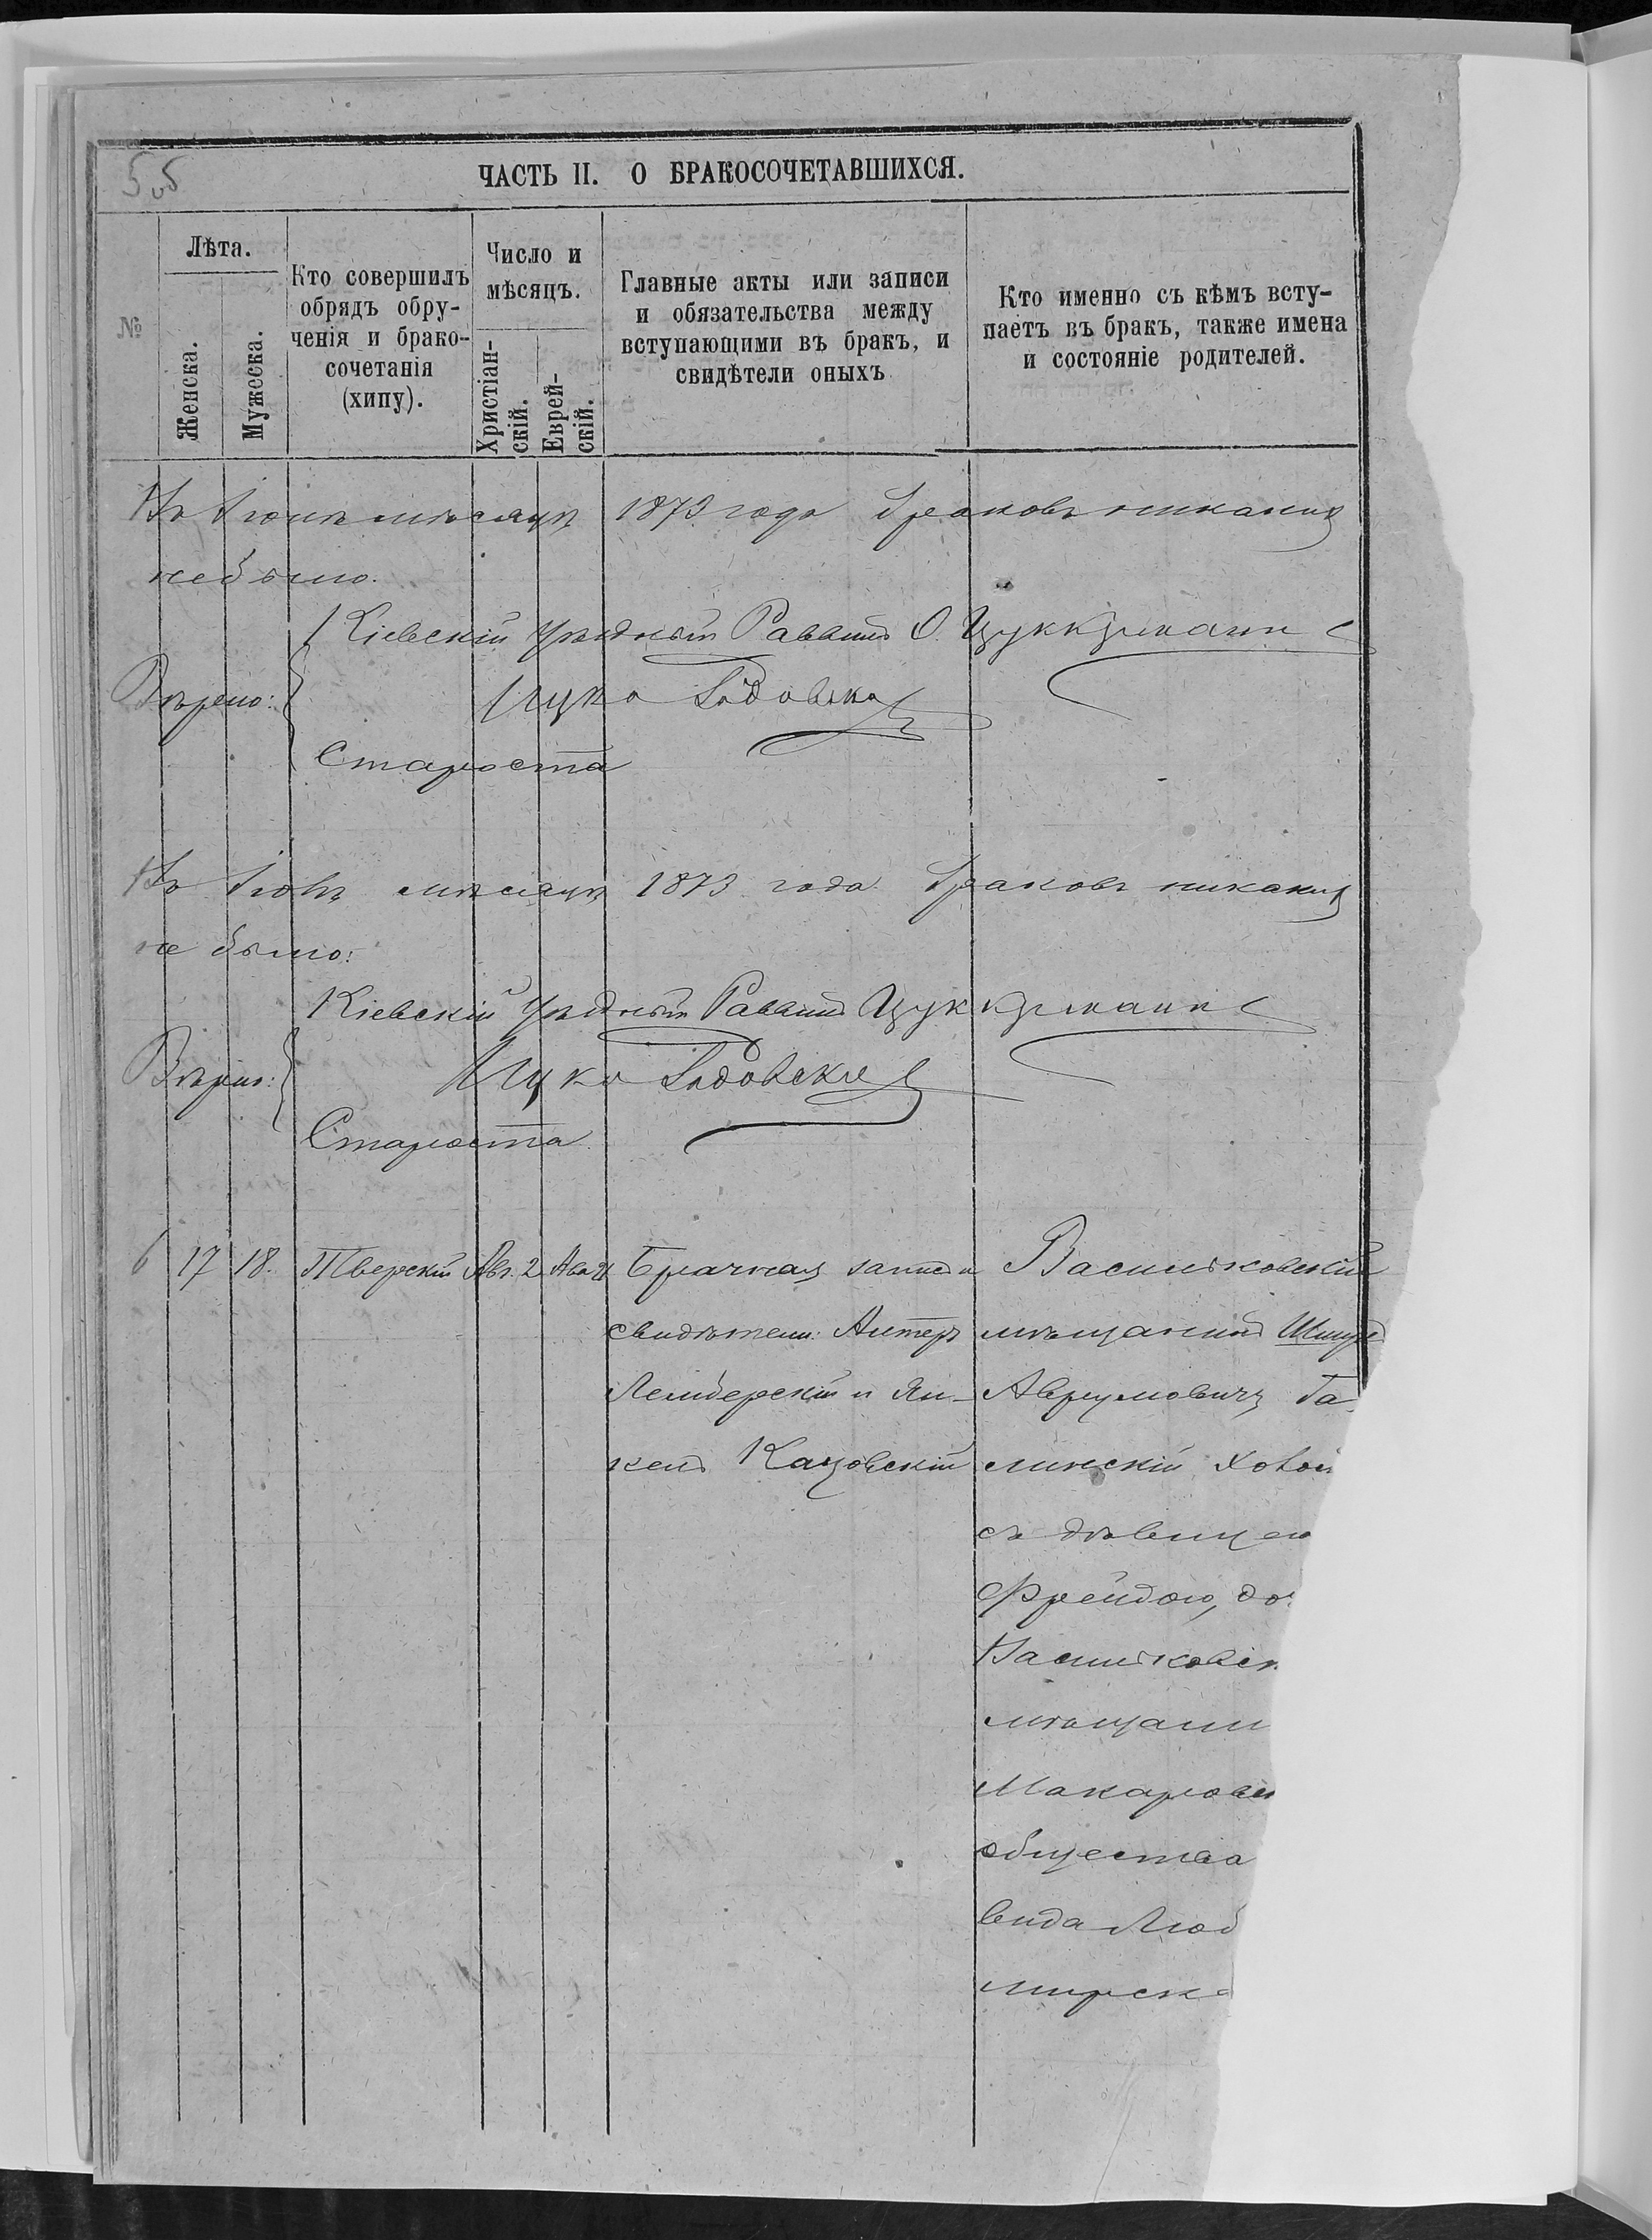 5об
ЧАСТЬ II. О БРАКОСОЧЕТАВШИХСЯ.
№
Лѣта.
Женска.
Мужеска.
Кто совершилъ
обрядъ обру-
ченія и брако-
сочетанія
(хипу).
Число и
мѣсяцъ.
Христіан-
скій.
Еврей-
скій.
Главные акты или записи
и обязательства между
вступающими въ бракъ, и
свидѣтели оныхъ
Кто именно съ кѣмъ всту-
паетъ въ бракъ, также имена
и состояніе родителей.
Въ Іюнѣ мѣсяцѣ 1873 года браковъ никакихъ
небыло.
Кіевскій Уѣздный Раввинъ О. Цуккерманъ
Вѣрно:
Ицко
Староста
Въ Іюлѣ мѣсяцѣ 1873 года браковъ никакихъ
не было:
Кіевскій Уѣздный Раввинъ Цуккерманъ
Вѣрно:
Ицко
Староста
6 17 18. Тверскій Авг. 2 Ава 21 Брачная запись и
свидѣтели: Алтеръ
Лемберскій и Ян-
кель Кацовскій
Васильковскій
мѣщанинъ Шмуль
Аврумовичъ Га
линскій холост
съ дѣвицею
Фрейдою, до
Васильковск
мѣщани
Макаровск
общества
вида Люб
мирска